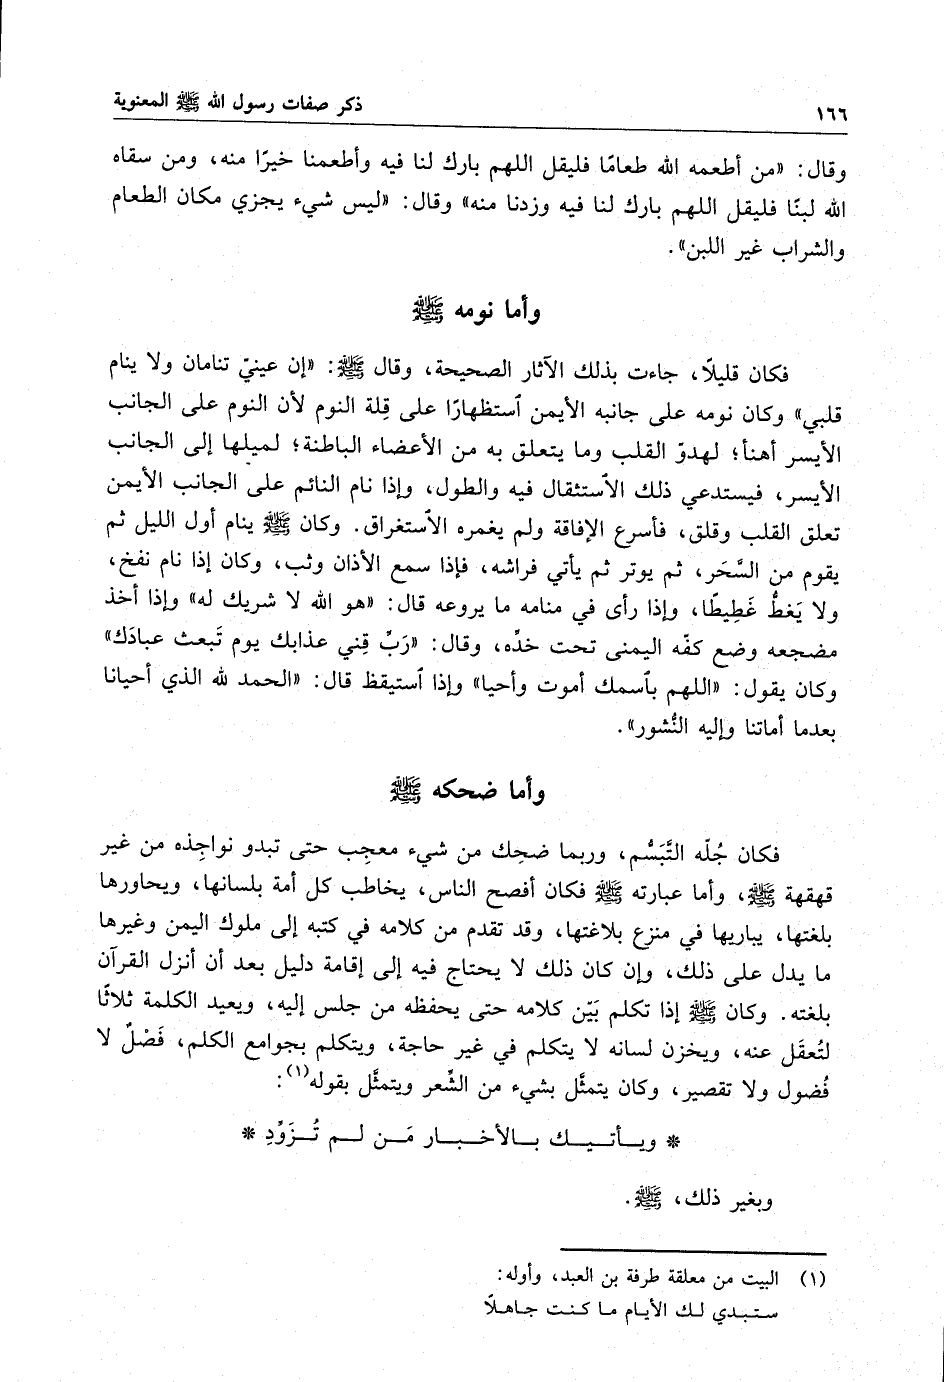 ١٦٦ ذكر صفات رسول الله ﷺ المعنوية
وقال: «من أطعمه الله طعامًا فليقل اللهم بارك لنا فيه وأطعمنا خيرًا منه، ومن سقاه
الله لبنًا فليقل اللهم بارك لنا فيه وزدنا منه» وقال: «ليس شيء يجزي مكان الطعام
والشراب غير اللبن».
وأما نومه ﷺ
فكان قليلًا، جاءت بذلك الآثار الصحيحة، وقال ﷺ: «إن عينيّ تنامان ولا ينام
قلبي» وكان نومه على جانبه الأيمن ٱستظهارًا على قِلة النوم لأن النوم على الجانب
الأيسر أهنأ؛ لهدوّ القلب وما يتعلق به من الأعضاء الباطنة؛ لميلها إلى الجانب
الأيسر، فيستدعي ذلك الٱستثقال فيه والطول، وإذا نام النائم على الجانب الأيمن
تعلق القلب وقلق، فأسرع الإفاقة ولم يغمره الٱستغراق. وكان ﷺ ينام أول الليل ثم
يقوم من السَّحَر، ثم يوتر ثم يأتي فراشه، فإذا سمع الأذان وثب، وكان إذا نام نفخ،
ولا يَغطُّ غَطِيطًا، وإذا رأى في منامه ما يروعه قال: «هو الله لا شريك له» وإذا أخذ
مضجعه وضع كفّه اليمنى تحت خدِّه، وقال: «رَبِّ قِني عذابك يوم تَبعث عبادَك»
وكان يقول: «اللهم بٱسمك أموت وأحيا» وإذا ٱستيقظ قال: «الحمد لله الذي أحيانا
بعدما أماتنا وإليه النُّشور».
وأما ضحكه ﷺ
فكان جُلّه التَّبَسُّم، وربما ضحِك من شيء معجِب حتى تبدو نواجِذه من غير
قهقهة ﷺ، وأما عبارته ﷺ فكان أفصح الناس، يخاطب كل أمة بلسانها، ويحاورها
بلغتها، يباريها في منزع بلاغتها، وقد تقدم من كلامه في كتبه إلى ملوك اليمن وغيرها
ما يدل على ذلك، وإن كان ذلك لا يحتاج فيه إلى إقامة دليل بعد أن أنزل القرآن
بلغته. وكان ﷺ إذا تكلم بَيّن كلامه حتى يحفظه من جلس إليه، ويعيد الكلمة ثلاثًا
لتُعقَل عنه، ويخزن لسانه لا يتكلم في غير حاجة، ويتكلم بجوامع الكلم، فَصْلٌ لا
فُضول ولا تقصير، وكان يتمثَّل بشيء من الشِّعر ويتمثَّل بقوله(١):
* ويـأتـيـك بـالأخـبـار مَـن لـم تُـزَوِّدِ *
وبغير ذلك، ﷺ.
(١) البيت من معلقة طرفة بن العبد، وأوله:
ستبدي لك الأيام ما كنت جاهلًا